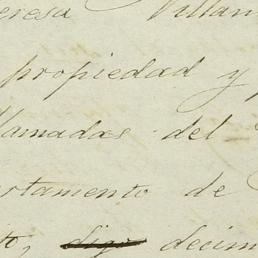 eresa Villan
propiedad y p
llamadas del
artamento de
to, digo decim